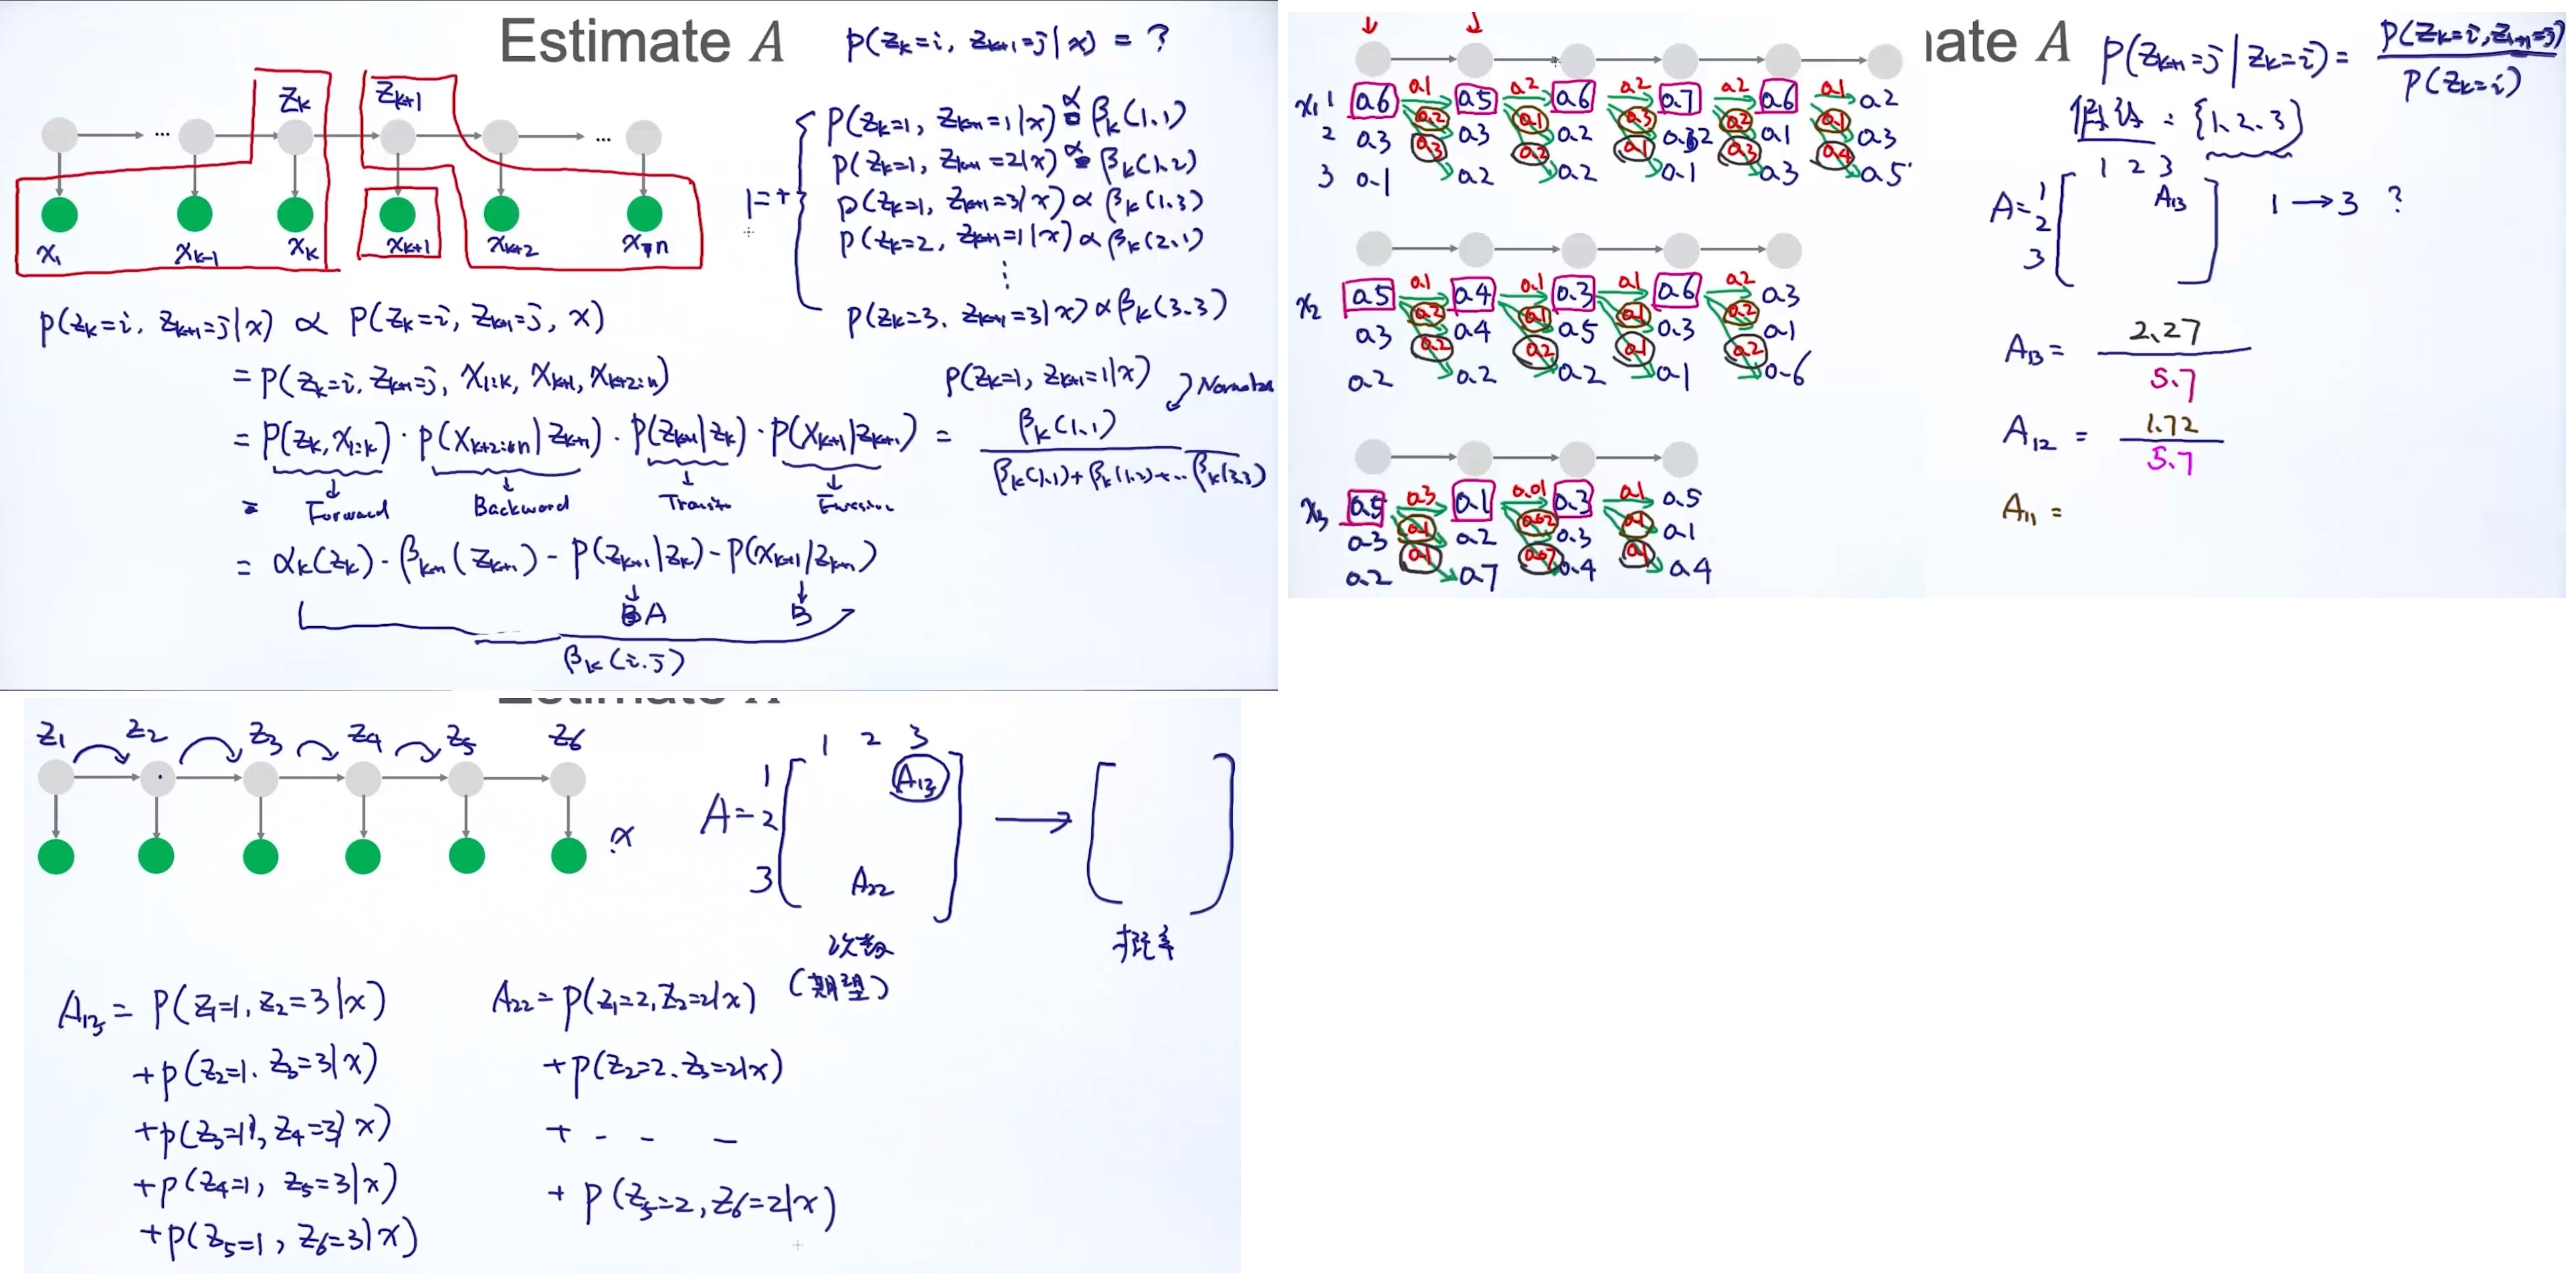 Estimate A
P(Zk=i, Zk+1=j|x) = ?
Zk
Zk+1
x1
xk-1
xk
xk+1
xk+2
xn
1=+
P(Zk=1, Zk+1=1|x) ∝ βk(1,1)
P(Zk=1, Zk+1=2|x) ∝ βk(1,2)
P(Zk=1, Zk+1=3|x) ∝ βk(1,3)
P(Zk=2, Zk+1=1|x) ∝ βk(2,1)
⋮
P(Zk=3, Zk+1=3|x) ∝ βk(3,3)
P(Zk=i, Zk+1=j|x) ∝ P(Zk=i, Zk+1=j, x)
= P(Zk=i, Zk+1=j, x1:k, xk+1, xk+2:n)
= P(Zk, x1:k) · P(xk+2:n|Zk+1) · P(Zk+1|Zk) · P(xk+1|Zk+1)
= Forward Backward
= αk(Zk) · βk+1(Zk+1) - P(Zk+1|Zk) - P(xk+1|Zk+1)
A B
βk(i,j)
P(Zk=1, Zk+1=1|x)
= βk(1,1)
βk(1,1)+βk(1,2)+...βk(3,3)
x1 1 0.6 0.1 0.5 0.2 0.6 0.2 0.7 0.2 0.6 0.1 0.2
0.2 0.1 0.3 0.2 0.1
2 0.3 0.3 0.2 0.2 0.1 0.3
0.3 0.2 0.1 0.3 0.4
3 0.1 0.2 0.2 0.1 0.3 0.5
x2 0.5 0.1 0.4 0.1 0.3 0.1 0.6 0.2 0.3
0.2 0.1 0.1 0.2
0.3 0.4 0.5 0.3 0.1
0.2 0.2 0.1 0.2
0.2 0.2 0.2 0.1 0.6
x3 0.5 0.3 0.1 0.01 0.3 0.1 0.5
0.1 0.02 0.1
0.3 0.2 0.3 0.1
0.1 0.07 0.1
0.2 0.7 0.4 0.4
ate A
P(Zk+1=j|Zk=i) = P(Zk=i, Zk+1=j)
P(Zk=i)
假设: {1,2,3}
1 2 3
A= 1 A13
2
3
1→3 ?
A13 = 2.27
5.7
A12 = 1.72
5.7
A11 =
Z1 Z2 Z3 Z4 Z5 Z6
x
1 2 3
1 A13
A= 2
3 A22
次数
(期望)
概率
A13 = P(Z1=1, Z2=3|x)
+P(Z2=1, Z3=3|x)
+P(Z3=1, Z4=3|x)
+P(Z4=1, Z5=3|x)
+P(Z5=1, Z6=3|x)
A22 = P(Z1=2, Z2=2|x)
+P(Z2=2, Z3=2|x)
+ - - -
+ P(Z5=2, Z6=2|x)